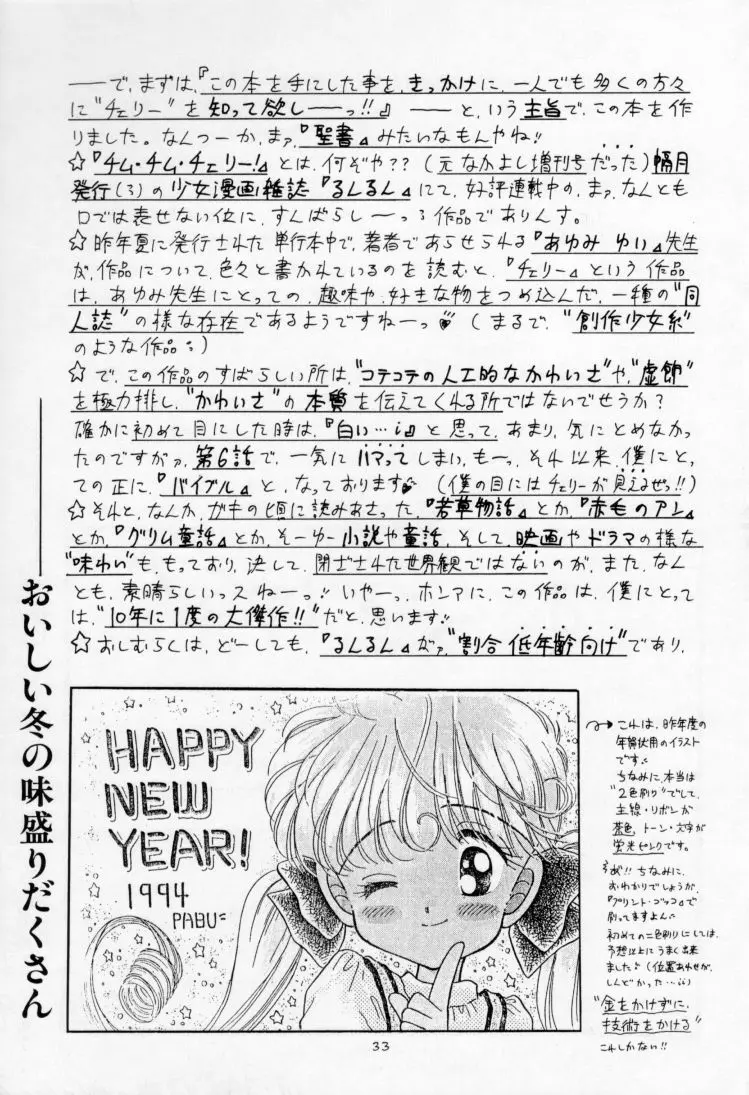 ――で、まずは、『この本を手にした事を、きっかけに、一人でも多くの方々
に"チェリー"を知って欲し――っ!!』 ――と、いう主旨で、この本を作
りました。なんつーか、まァ、『聖書』みたいなもんやね!!
☆『チム・チム・チェリー!』とは、何ぞや?? (元なかよし増刊号だった)隔月
発行(3)の少女漫画雑誌『るんるん』にて、好評連載中の、まァ、なんとも
口では表せない位に、すんばらし――っ3作品でありんす。
☆昨年夏に発行された単行本中で、著者であらせられる『あゆみ ゆい』先生
が、作品について、色々と書かれているのを読むと、『チェリー』という作品
は、あゆみ先生にとっての、趣味や、好きな物をつめ込んだ、一種の"同
人誌"の様な存在であるようですねーっ (まるで、"創作少女系"
のような作品)
☆で、この作品のすばらしい所は、"コテコテの人工的なかわいさ"や、"虚飾"
を極力排し、"かわいさ"の本質を伝えてくれる所ではないでせうか?
確かに初めて目にした時は、『白い…』と思って、あまり、気にとめなかっ
たのですがァ、第6話で、一気にハマってしまい、もーっ、それ以来、僕にとっ
ての正に、『バイブル』と、なっております (僕の目にはチェリーが見えるぜっ!!)
☆それと、なんか、ガキの頃に読みあさった、『若草物語』とか、『赤毛のアン』
とか、『グリム童話』とか、そーゆー小説や童話、そして、映画やドラマの様な
"味わい"も、もっており、決して、閉ざされた世界観ではないのが、また、なん
とも、素晴らしいっスねーっ!! いやーっ、ホンマに、この作品は、僕にとって
は、"10年に1度の大傑作!!"だと、思います!!
☆おしむらくは、どーしても、『るんるん』がァ、"割合 低年齢向け"であり、
おいしい冬の味盛りだくさん
HAPPY
NEW
YEAR!
1994
PABU
これは、昨年度の
年賀状用のイラスト
です。
ちなみに、本当は
"2色刷り"でして、
主線・リボンが
茶色、トーン・文字が
蛍光ピンクです。
ちなみに、
おわかりでしょうが、
『プリント・ゴッコ』で
刷ってますよん
初めての二色刷りにしては、
予想以上にうまく出来
ました♪(位置あわせが、
しんどかった…)
"金をかけずに、
技術をかける"
これしかない!!
33